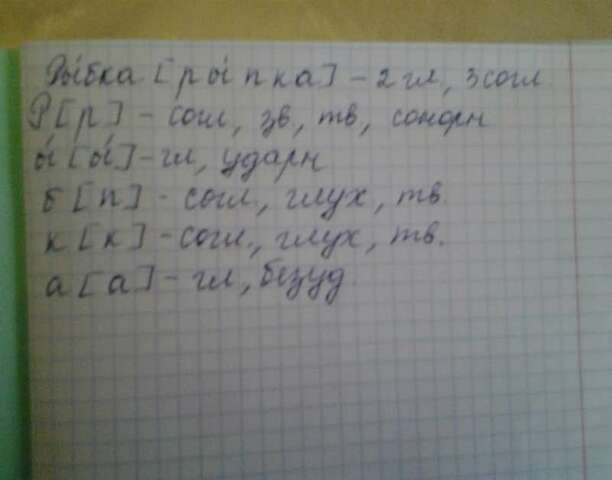 Ры́бка [ры́пка] – 2 гл, 3 согл
Р [р] – согл, зв, тв, сонорн
ы́ [ы́] – гл, ударн
б [п] - согл, глух, тв.
к [к] – согл, глух, тв.
а [а] – гл, безуд